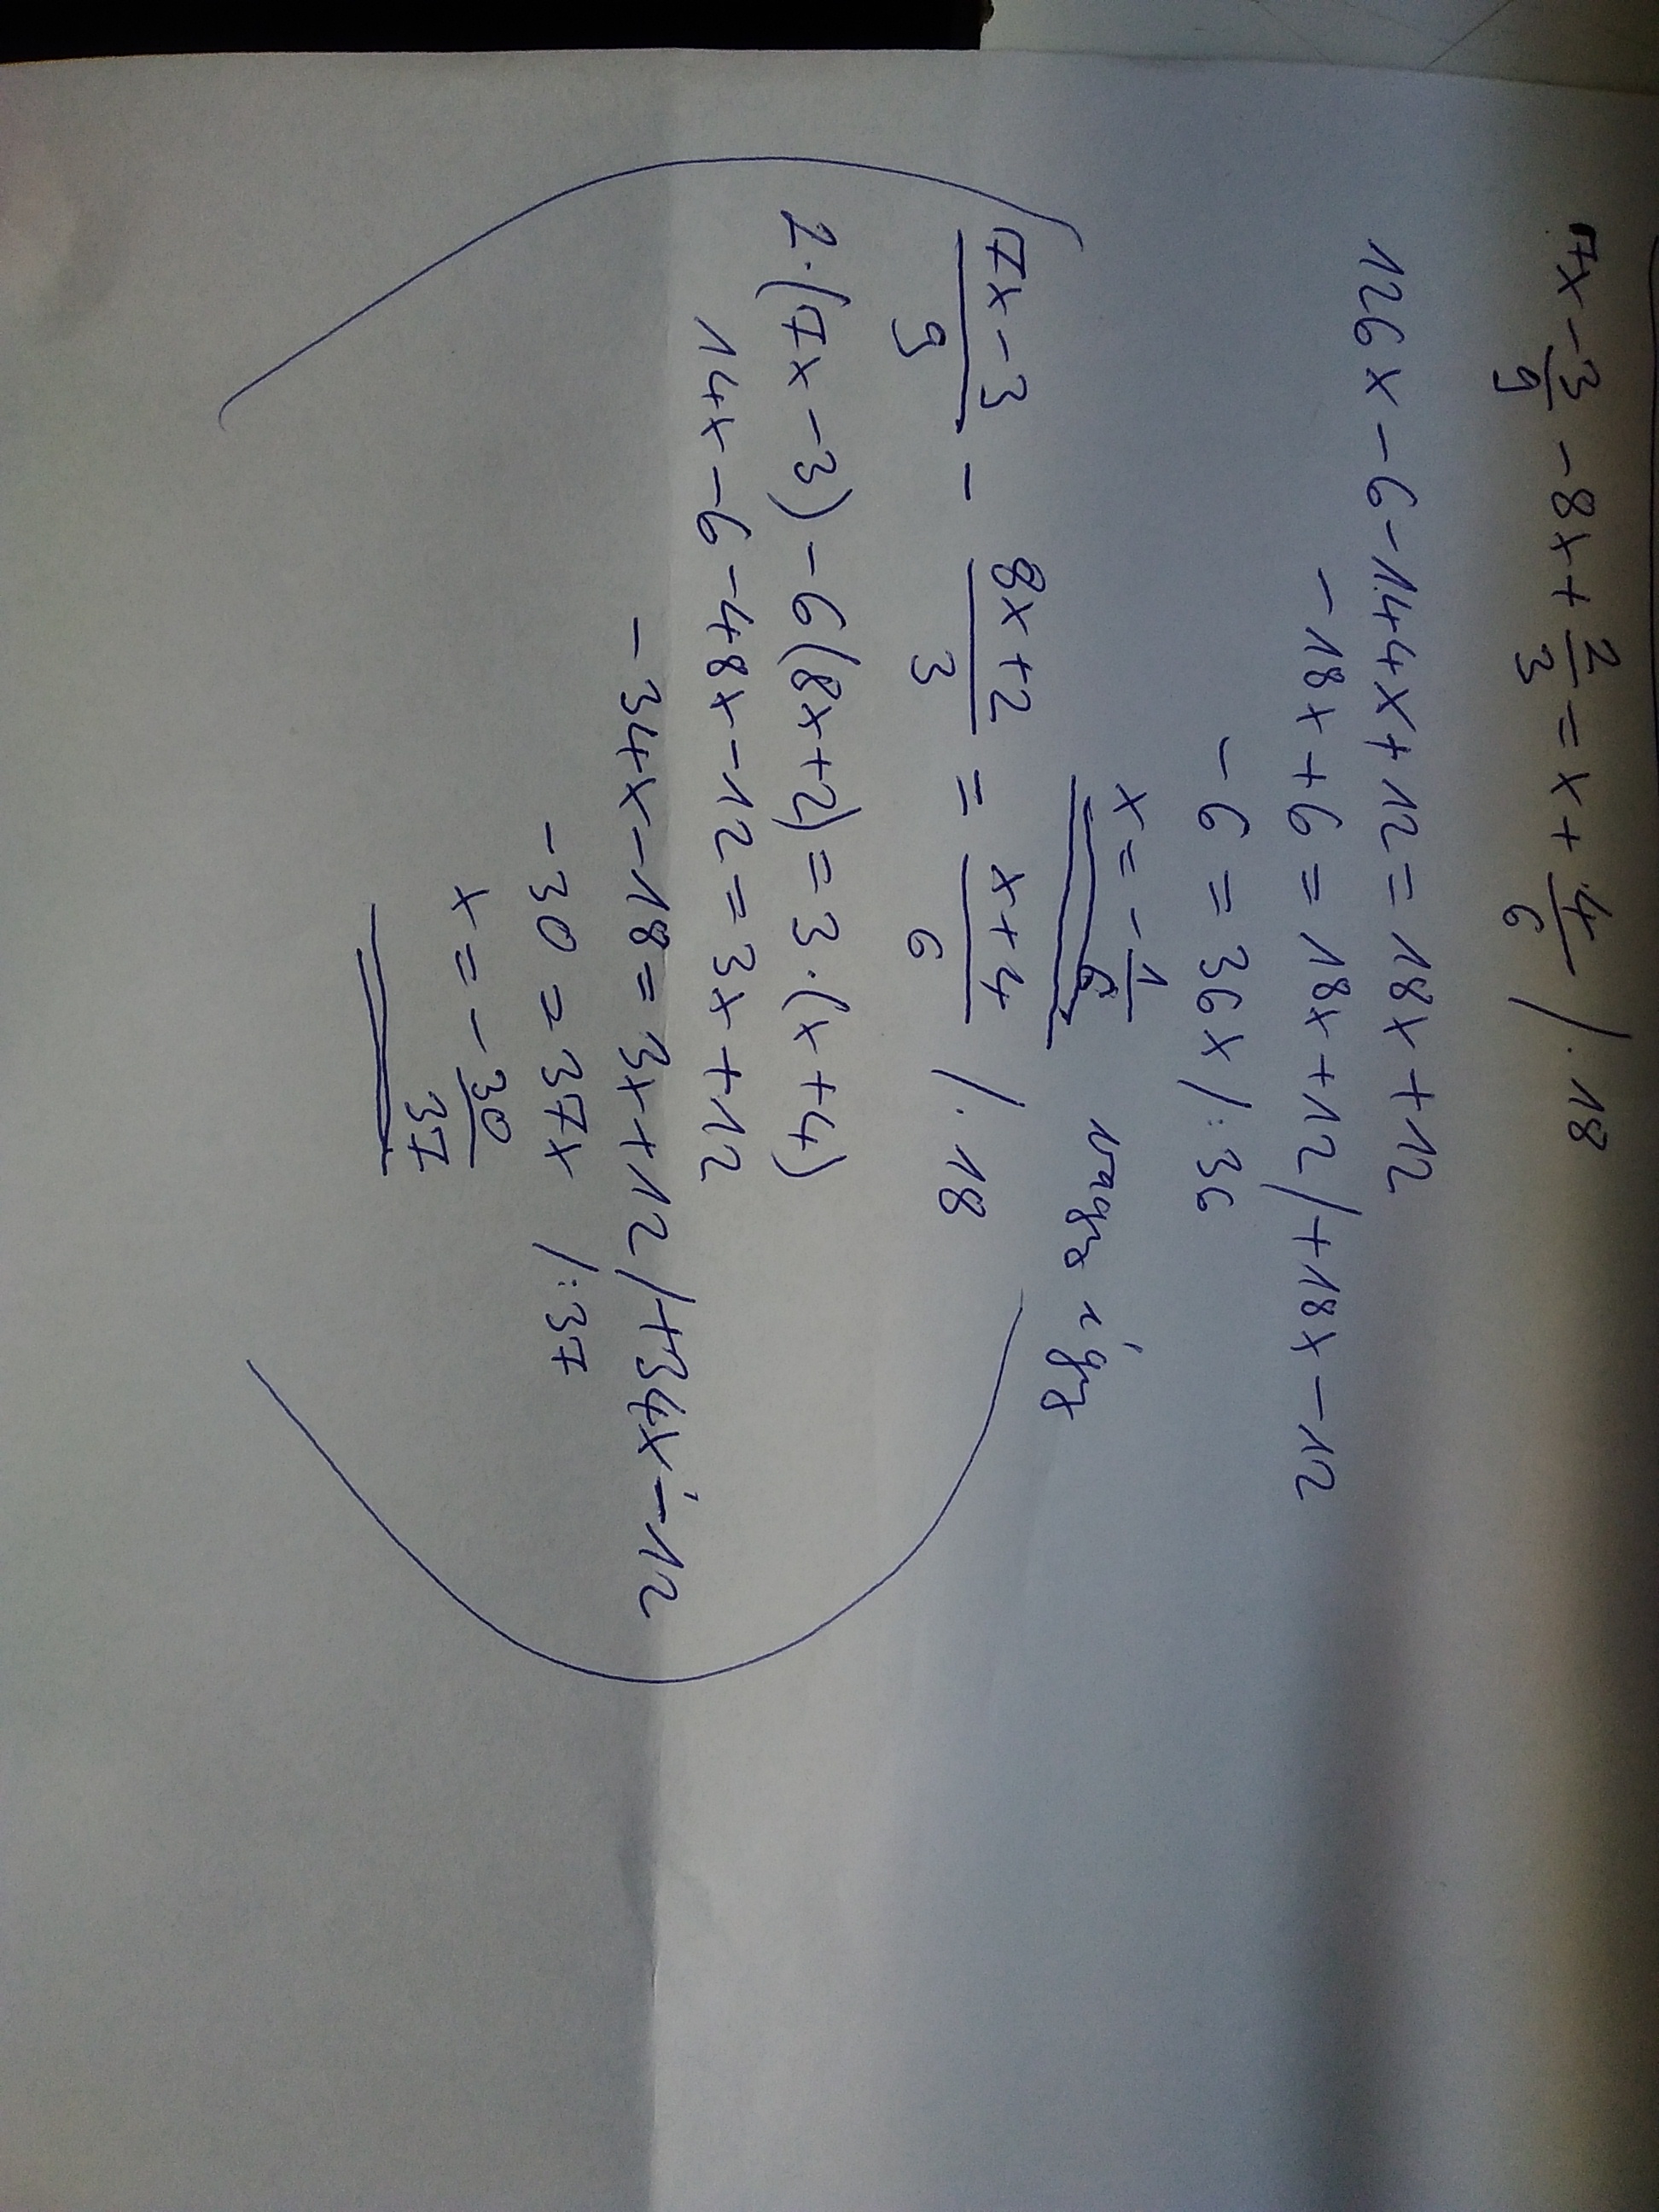 7x - 3/9 - 8x + 2/3 = x + 4/6 /·18
126x - 6 - 144x + 12 = 18x + 12
- 18x + 6 = 18x + 12 / + 18x - 12
- 6 = 36x /: 36
x = - 1/6 vagy így
(7x - 3)/9 - (8x + 2)/3 = (x + 4)/6 /·18
2·(7x - 3) - 6(8x + 2) = 3·(x + 4)
14x - 6 - 48x - 12 = 3x + 12
- 34x - 18 = 3x + 12 / + 34x; - 12
- 30 = 37x /: 37
x = - 30/37